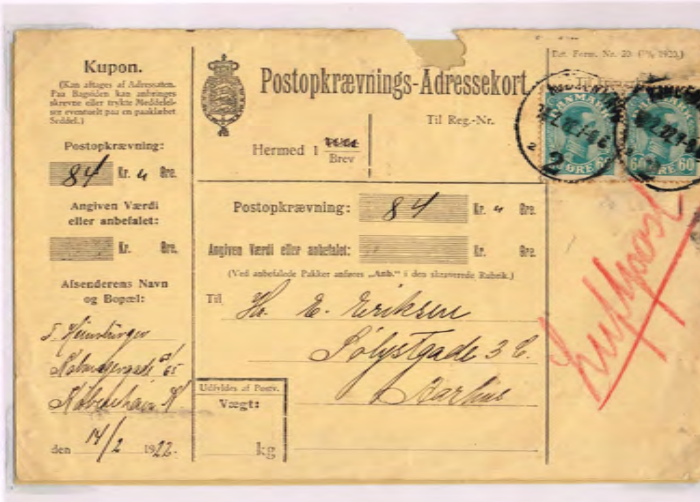 Kupon.
(Kan aftages af Adressaten.
Paa Bagsiden kan anbringes
skrevne eller trykte Meddelel-
ser eventuelt paa en paaklæbet
Seddel.)
Postopkrævning:
84 Kr. " Øre.
Angiven Værdi
eller anbefalet:
Kr. Øre.
Afsenderens Navn
og Bopæl:
65
København K
den 14/2 1922.
Postopkrævnings-Adressekort.
Til Reg.-Nr.
Hermed 1
Brev
Postopkrævning: 84 Kr. " Øre.
Angiven Værdi eller anbefalet: Kr. Øre.
(Ved anbefalede Pakker anføres „Anb.“ i den skraverede Rubrik.)
Til Hr. E. Eriksen
Sølystgade 3 C.
Aarhus
Udfyldes af Postv.
Vægt:
kg
Form. Nr. 20.
DANMARK
60 ØRE 60
2
60 ØRE 60
Luftpost